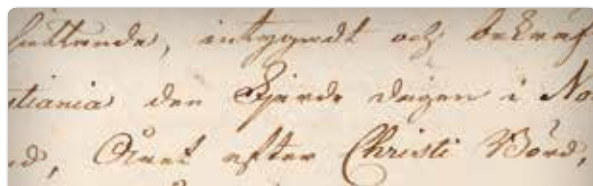 intygadt och bekräf
tiania den Fjerde dagen i No
d, Året efter Christi Börd,